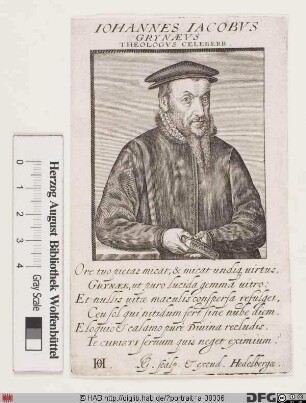 IOHANNES IACOBVS
GRYNÆVS
THEOLOGVS CELEBERR.
Ore tuo pietas micat, & micat undiq virtus,
GRYNÆE, ut puro lucida gemma vitro:
Et nullis vitæ maculis conspersa refulget,
Ceu sol qui nitidum fert sine nube diem.
Eloquio & calamo pure Divina recludis.
Te CHRISTI servum quis neget eximium?
HI sculp. & excud. Hedelbergæ.
Herzog August Bibliothek Wolfenbüttel
Gray Scale
© HAB http://diglib.hab.de/?portrait=a_08306
DFG